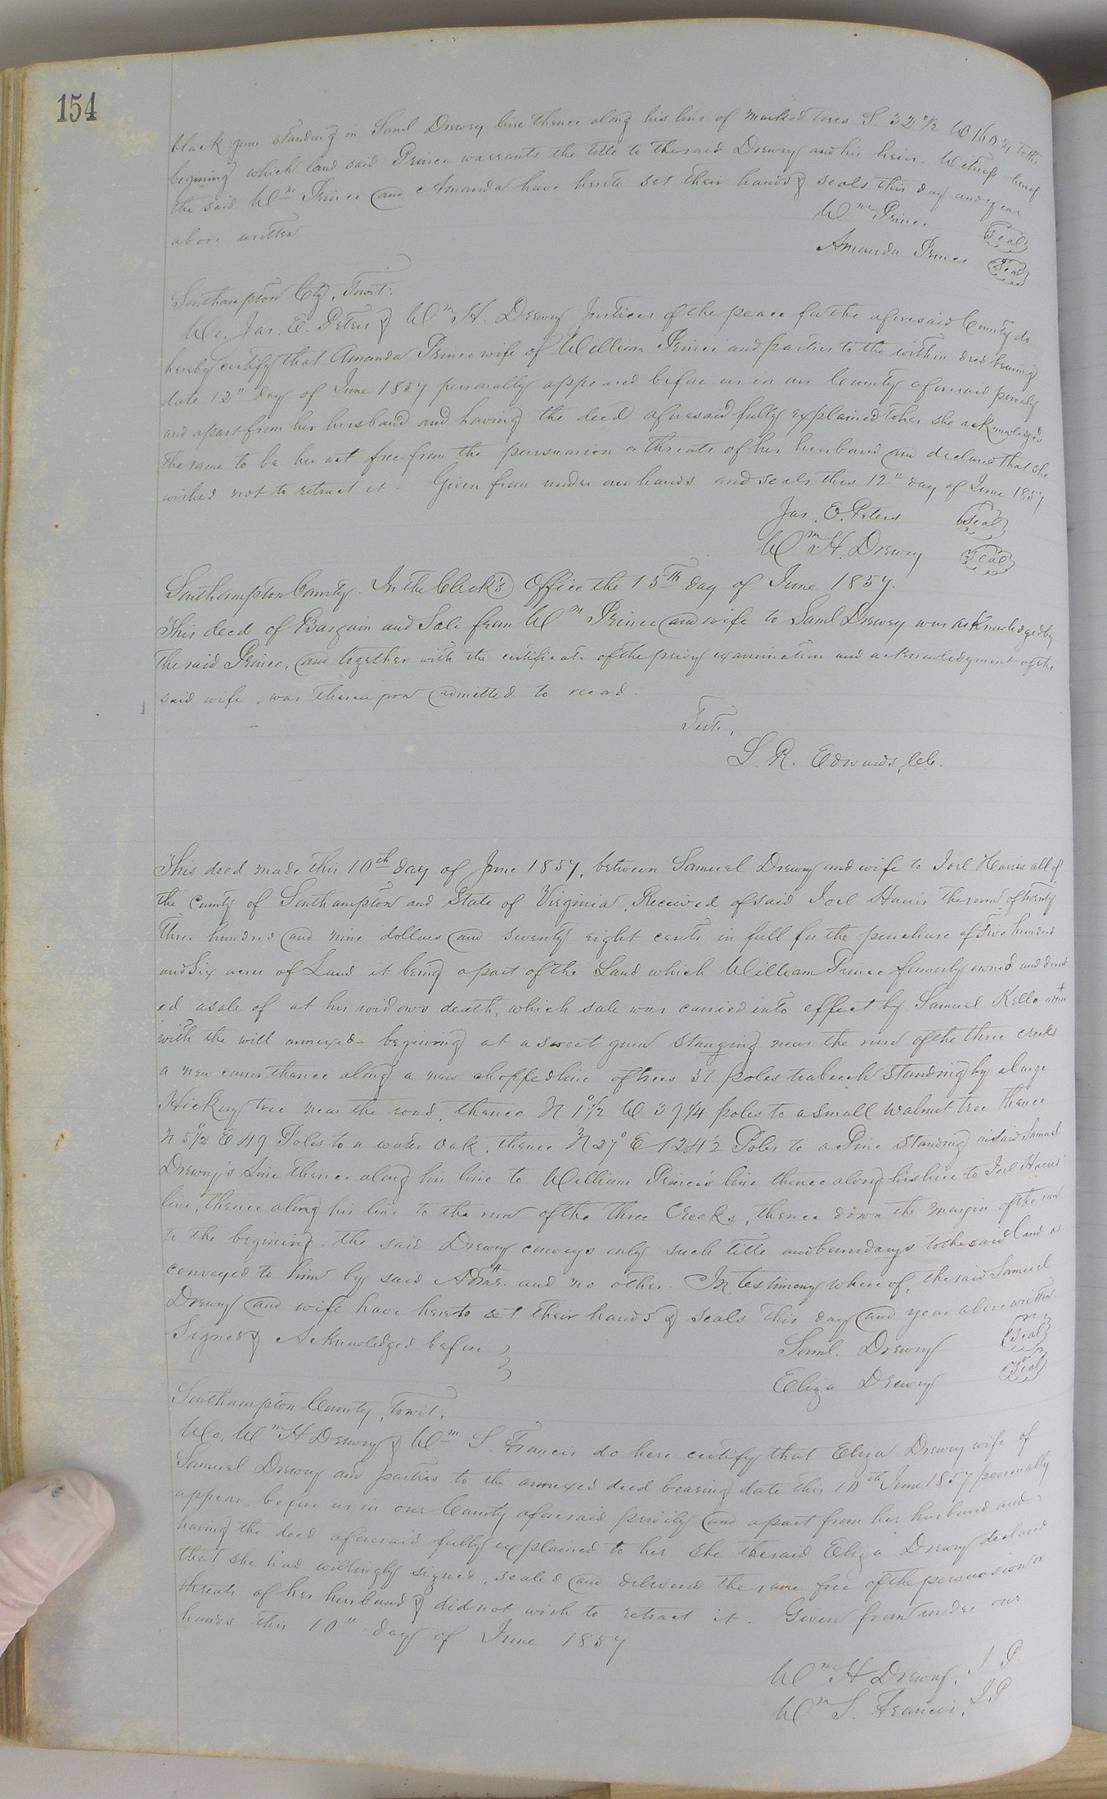 154
black pine standing in Saml Drewry line thence along his line of marked trees S. 32° 1/2 W 160 to the
begining which land said Prince warrants the title to the said Drewry and his heirs. Witness hereof
the said Wm Prince and Amanda have hereto set their hands & seals this day and year
above written
Wm Prince. (Seal)
Amanda Prince (Seal)
Southampton Cty, Towit:
We, Jas. E. Peters & Wm H. Drewry Justices of the peace for the aforesaid County do
hereby certify that Amanda Prince wife of William Prince and parties to the within deed bearing
date 12" day of June 1857 personally appeared before us in our County aforesaid privily
and apart from her husband and having the deed aforesaid fully explained to her she acknowledged
the same to be her act free from the persuasion or threats of her husband and declares that she
wished not to retract it. Given from under our hands and seals this 12th day of June 1857
Jas. E. Peters (Seal)
Wm H. Drewry (Seal)
Southampton County. In the Clerk's Office the 15th day of June 1857.
This deed of Bargain and Sale from Wm Prince and wife to Saml Drewry was acknowledged by
the said Prince, and together with the certificate of the privy examination and acknowledgment of the
said wife, was thereupon admitted to record.
Teste,
L. R. Edwards, Clk.
This deed made this 10th day of June 1857, between Samuel Drewry and wife to Joel Harris all of
the County of Southampton and State of Virginia, Received of said Joel Harris the sum of twenty
three hundred and nine dollars and seventy eight cents in full for the purchase of Two hundred
and six acres of Land it being a part of the Land which William Prince formerly owned and direct
ed a sale of at his widows death, which sale was carried into effect by Samuel Kello
with the will annexed - begining at a sweet gum standing near the run of the three creeks
a new corner thence along a new chopped line of trees 31 poles to a beech standing by a large
Hickory tree near the road, thence N 1° 1/2 W 39 1/4 poles to a small walnut tree thence
N 5° 1/2 E 49 Poles to a water oak, thence N 27° E 124 1/2 Poles to a Pine standing in said Samuel
Drewry's Line thence along his line to William Prince's line thence along his line to Joel Harris'
line, thence along his line to the run of the three Creeks, thence down the margin of the run
to the begining. the said Drewry conveys only such title and boundarys to the said land as
conveyed to him by said Admr. and no other. In testimony where of, the said Samuel
Drewry and wife have hereto set their hands & seals this day and year above written.
Signed & Acknowledged before }
Saml. Drewry (Seal)
Eliza Drewry (Seal)
Southampton County, Towit,
We, Wm H Drewry & Wm S. Francis do here certify that Eliza Drewry wife of
Samuel Drewry and parties to the annexed deed bearing date this 10th June 1857 personally
appear before us in our County aforesaid privily and apart from her husband and
having the deed aforesaid fully explained to her she the said Eliza Drewry declared
that she had willingly signed, sealed and delivered the same free of the persuasion or
threats of her husband & did not wish to retract it. Given from under our
hands this 10" day of June 1857
Wm H Drewry, J P
Wm S. Francis, J.P